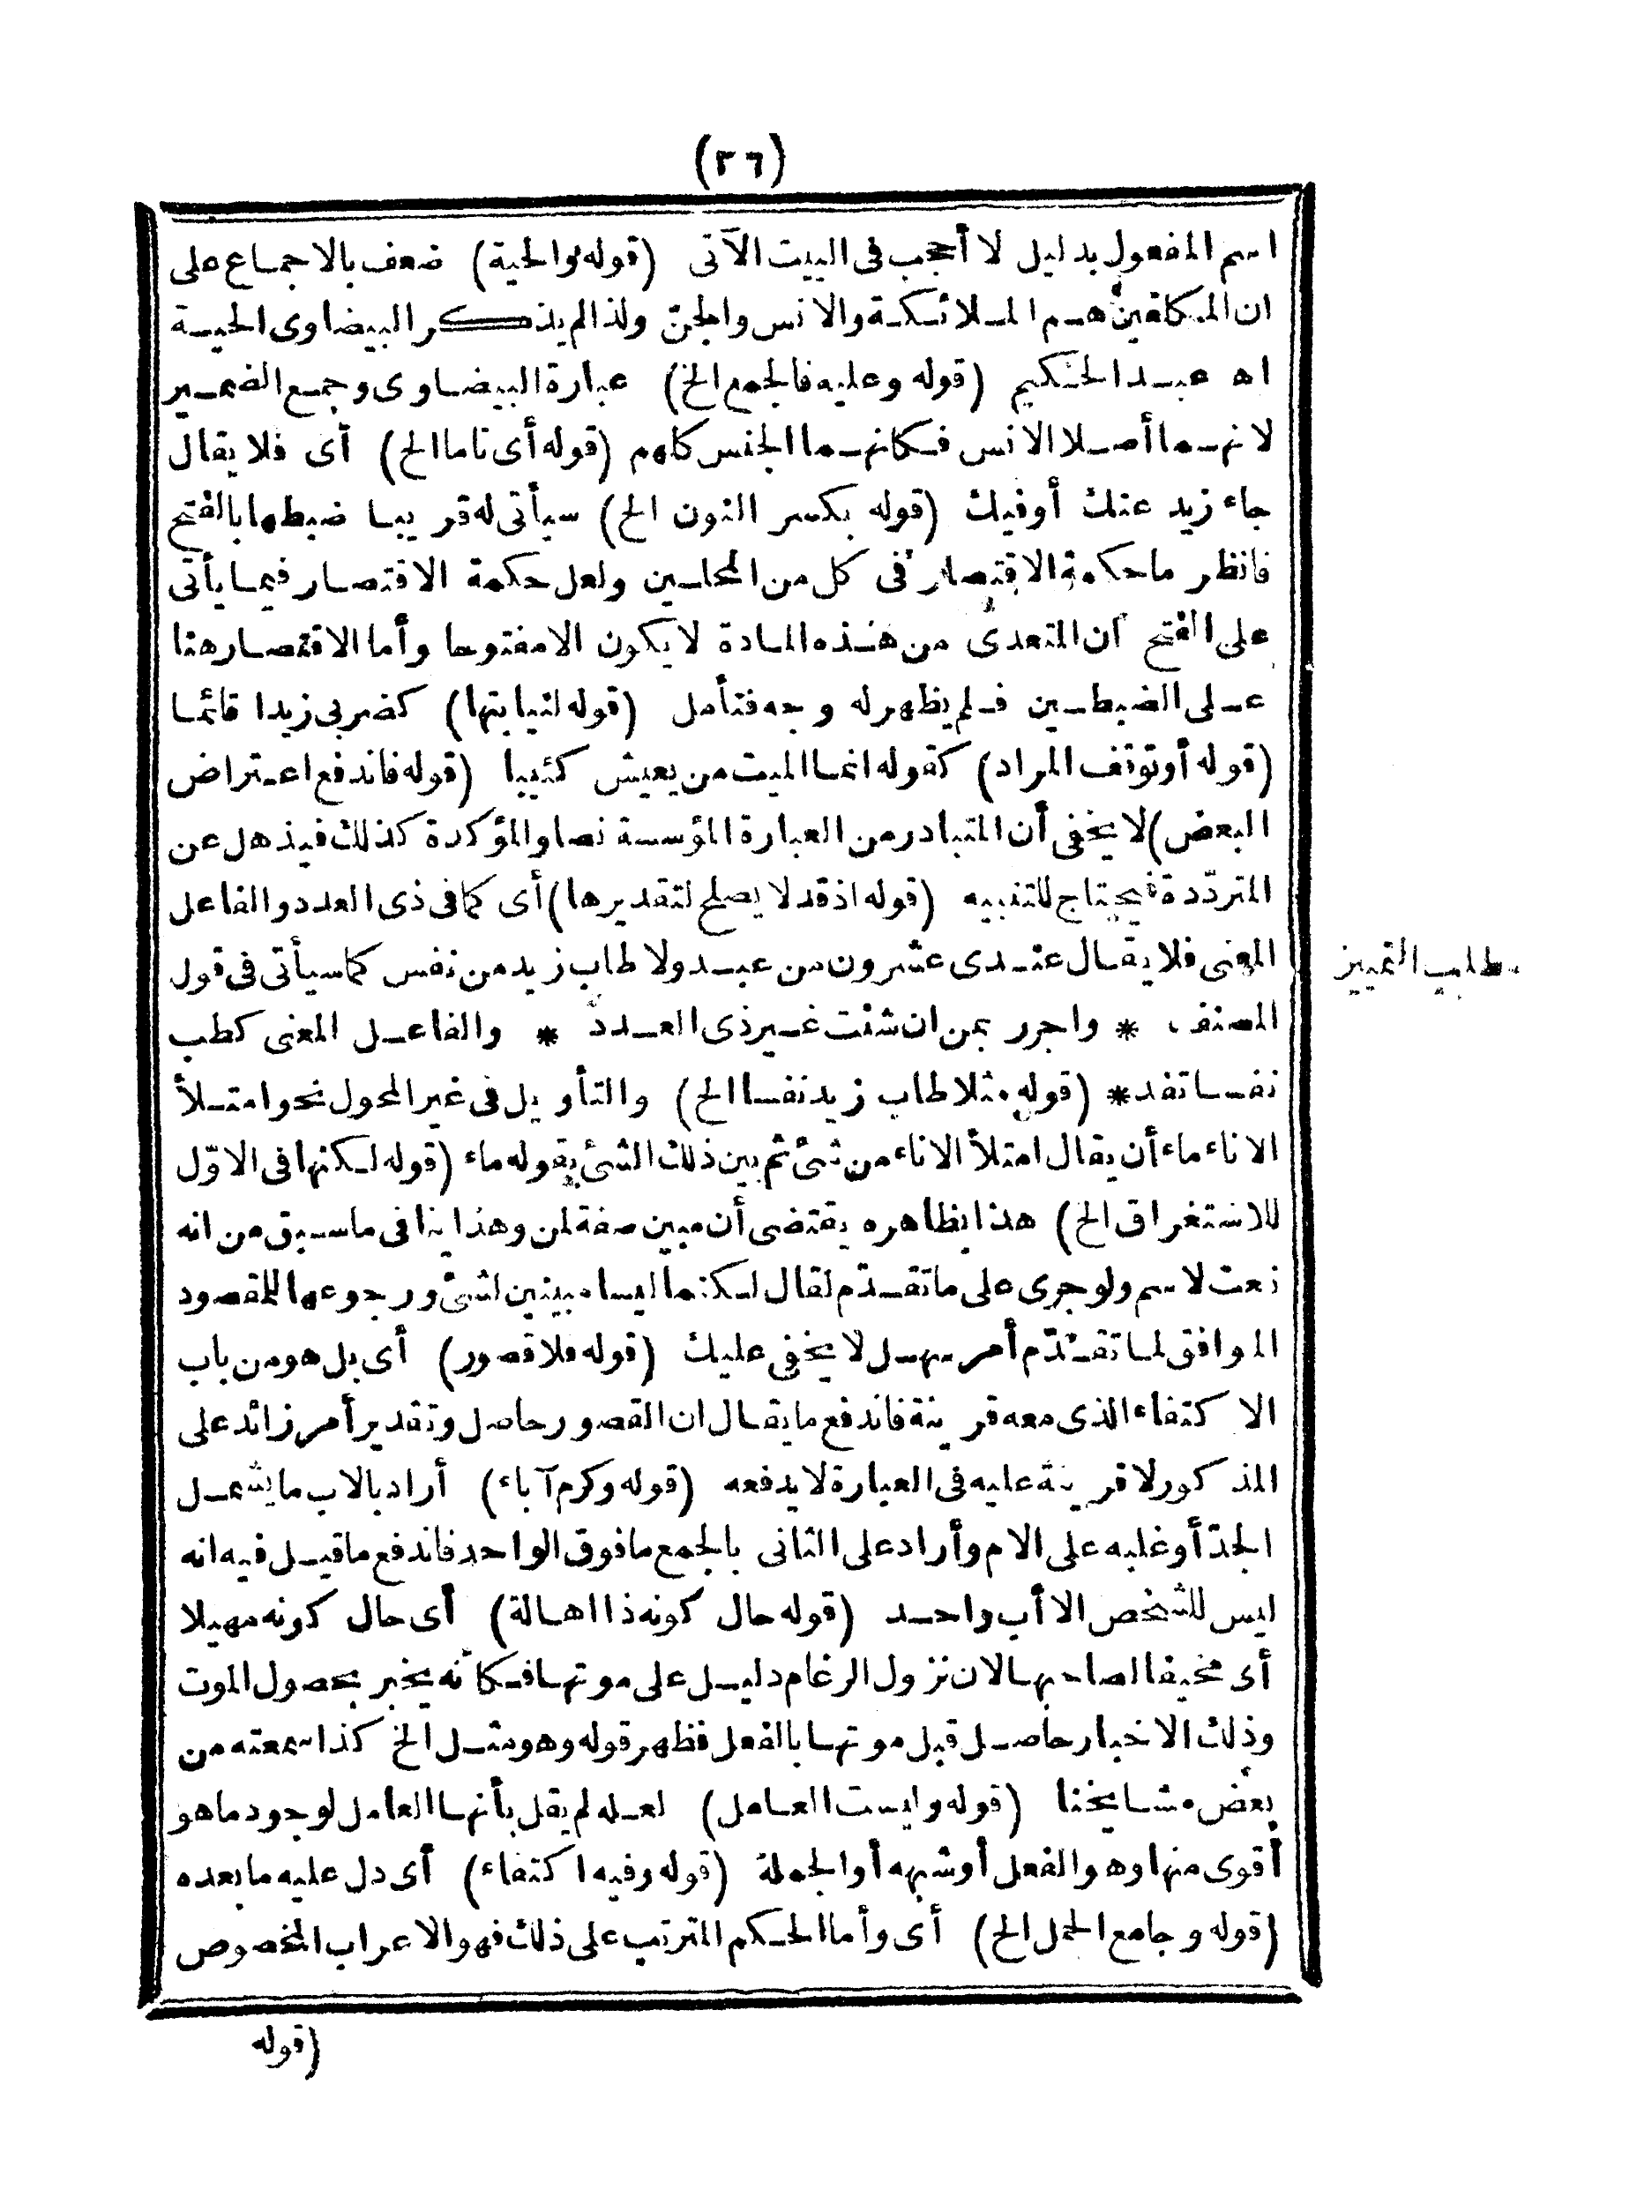 (٢٦)
اسم المفعول بدليل لا أحجب فى البيت الآتى (قوله والحية) ضعف بالاجماع على
ان المكلفين هم الملائكة والانس والجن ولذا لم يذكر البيضاوى الحية
اه عبد الحكيم (قوله وعليه فالجمع الخ) عبارة البيضاوى وجمع الضمير
لانهما أصلا الانس فكانهما الجنس كلهم (قوله أى تاما الخ) أى فلا يقال
جاء زيد عنك أوفيك (قوله بكسر النون الخ) سيأتى له قريبا ضبطها بالفتح
فانظر ما حكمة الاقتصار فى كل من المحلين ولعل حكمة الاقتصار فيما يأتى
على الفتح أن المتعدى من هذه المادة لا يكون الامفتوحا وأما الاقتصار هنا
على الضبطين فلم يظهر له وجه فتأمل (قوله لنيابتها) كضربى زيدا قائما
(قوله أوتوقف المراد) كقوله انما الميت من يعيش كئيبا (قوله فاندفع اعتراض
البعض) لا يخفى أن المتبادر من العبارة المؤسسة نصا والمؤكدة كذلك فيذهل عن
المتردّدة فيحتاج للتنبيه (قوله اذقد لا يصلح لتقديرها) أى كما فى ذى العدد والفاعل
المعنى فلا يقال عندى عشرون من عبد ولا طاب زيد من نفس كما سيأتى فى قول
مطلب التمييز
المصنف * واجرر بمن ان شئت غير ذى العدد * والفاعل المعنى كطب
نفسا تفد * (قوله مثلا طاب زيد نفسا الخ) والتأويل فى غير المحول نحو امتلأ
الاناء ماء أن يقال امتلأ الاناء من شئ ثم بين ذلك الشئ بقوله ماء (قوله لكنها فى الاوّل
للاستغراق الخ) هذا بظاهره يقتضى أن مبين صفة لمن وهذا ينافى ما سبق من انه
نعت لاسم ولو جرى على ما تقدّم لقال لكنما ليسا مبينين لشئ ورجوعها للمقصود
الموافق لما تقدّم أمر سهل لا يخفى عليك (قوله فلا قصور) أى بل هو من باب
الاكتفاء الذى معه قرينة فاندفع ما يقال ان القصور حاصل وتقدير أمر زائد على
المذكور لا قرينة عليه فى العبارة لا يدفعه (قوله وكرم آباء) أراد بالاب ما يشمل
الجدّ أو غلبه على الام وأراد على الثانى بالجمع ما فوق الواحد فاندفع ما قيل فيه انه
ليس للشخص الا أب واحد (قوله حال كونه ذا اهالة) أى حال كونه مهيلا
أى مخيفا لصاحبها لان نزول الرغام دليل على موتها فكأنه يخبر بحصول الموت
وذلك الاخبار حاصل قبل موتها بالفعل فظهر قوله وهو مثل الخ كذا سمعته من
بعض مشايخنا (قوله وليست العامل) لعله لم يقل بأنها العامل لوجود ما هو
أقوى منها وهو الفعل أو شبهه أو الجملة (قوله وفيه اكتفاء) أى دل عليه ما بعده
(قوله وجامع الحمل الخ) أى وأما الحكم المترتب على ذلك فهو الاعراب المخصوص
(قوله